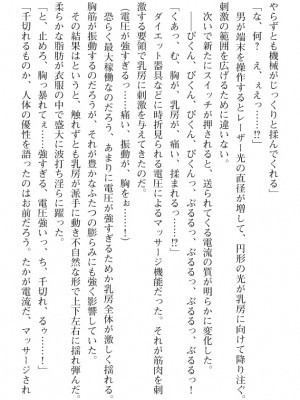 やらずとも機械がじっくりと揉んでくれる」
「な、何？　え、ぇえっ……!?」
　男が端末を操作するとレーダー光の直径が増して、円形の光が乳房に向けて降り注ぐ。
刺激の範囲を広げるために違いない。
　次いで新たにスイッチが押されると、送られてくる電流の質が明らかに変化した。
――ぴくん、ぴくん、ぴくんっっ、ぶるるっ、ぶるるっ、ぶるるっ！
「くあっ、む、胸が、乳房が、痛い、揉まれるっ……!?」
　ダイエット器具などに時折見られる電圧によるマッサージ機能だった。それが筋肉を刺
激する要領で乳房に刺激を与えてきたのだ。
（電圧が強すぎるっ……痛い、振動が、胸をぉ……!!）
　恐らく最大稼働なのだろう、あまりに電圧が強すぎるためか乳房全体が激しく揺れる。
胸筋が振動するのだろうが、それが豊かなふたつの膨らみにも強く影響していた。
　その結果はというと、触れずとも乳房が派手に動き不自然な形で上下左右に揺れ弾んだ。
柔らかな脂肪が衣服の中で盛大に波打ち淫らに躍った。
「と、止めろ、胸っ暴れてぇ……強すぎる、電圧強いっ、ち、千切れ、るゥ……！」
「千切れるものか、人体の優性を語ったのはお前だろう。たかが電流だ、マッサージされ